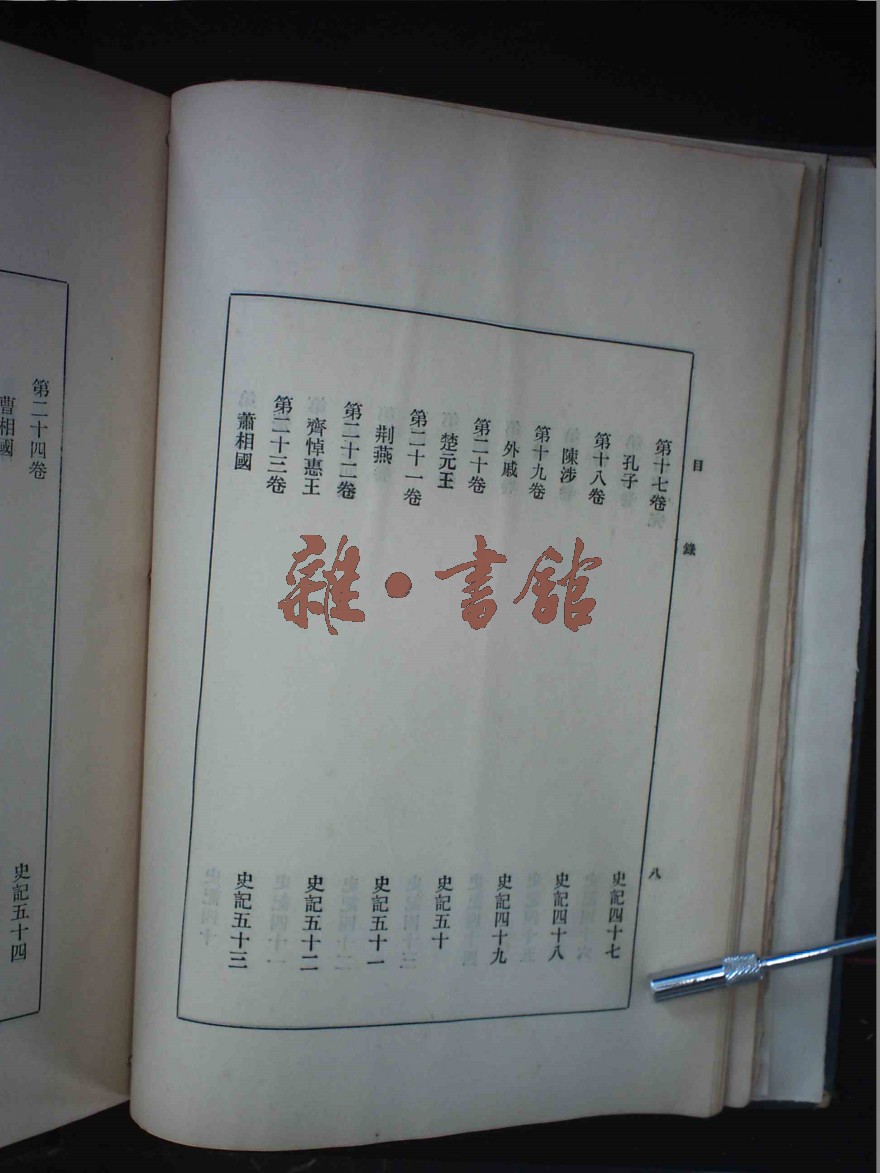 目錄 八
第十七卷
孔子 史記四十七
第十八卷
陳涉 史記四十八
第十九卷
外戚 史記四十九
第二十卷
楚元王 史記五十
第二十一卷
荆燕 史記五十一
第二十二卷
齊悼惠王 史記五十二
第二十三卷
蕭相國 史記五十三
第二十四卷
曹相國 史記五十四
雜·書館